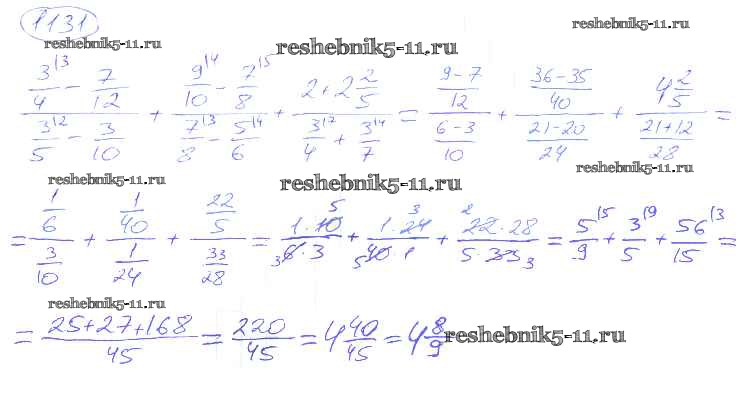 1131
reshebnik5-11.ru
reshebnik5-11.ru
reshebnik5-11.ru
(3/4 |3 − 7/12) / (3/5 |2 − 3/10) + (9/10 |4 − 7/8 |5) / (7/8 |3 − 5/6 |4) + (2 + 2 2/5) / (3/4 |7 + 3/7 |4) = ((9−7)/12) / ((6−3)/10) + ((36−35)/40) / ((21−20)/24) + (4 2/5) / ((21+12)/28) =
reshebnik5-11.ru
reshebnik5-11.ru
reshebnik5-11.ru
= (1/6) / (3/10) + (1/40) / (1/24) + (22/5) / (33/28) = (1·10 5) / (3 6·3) + (1·24 3) / (5 40·1) + (2 22·28) / (5·33 3) = 5/9 |5 + 3/5 |9 + 56/15 |3 =
reshebnik5-11.ru
= (25+27+168)/45 = 220/45 = 4 40/45 = 4 8/9
reshebnik5-11.ru